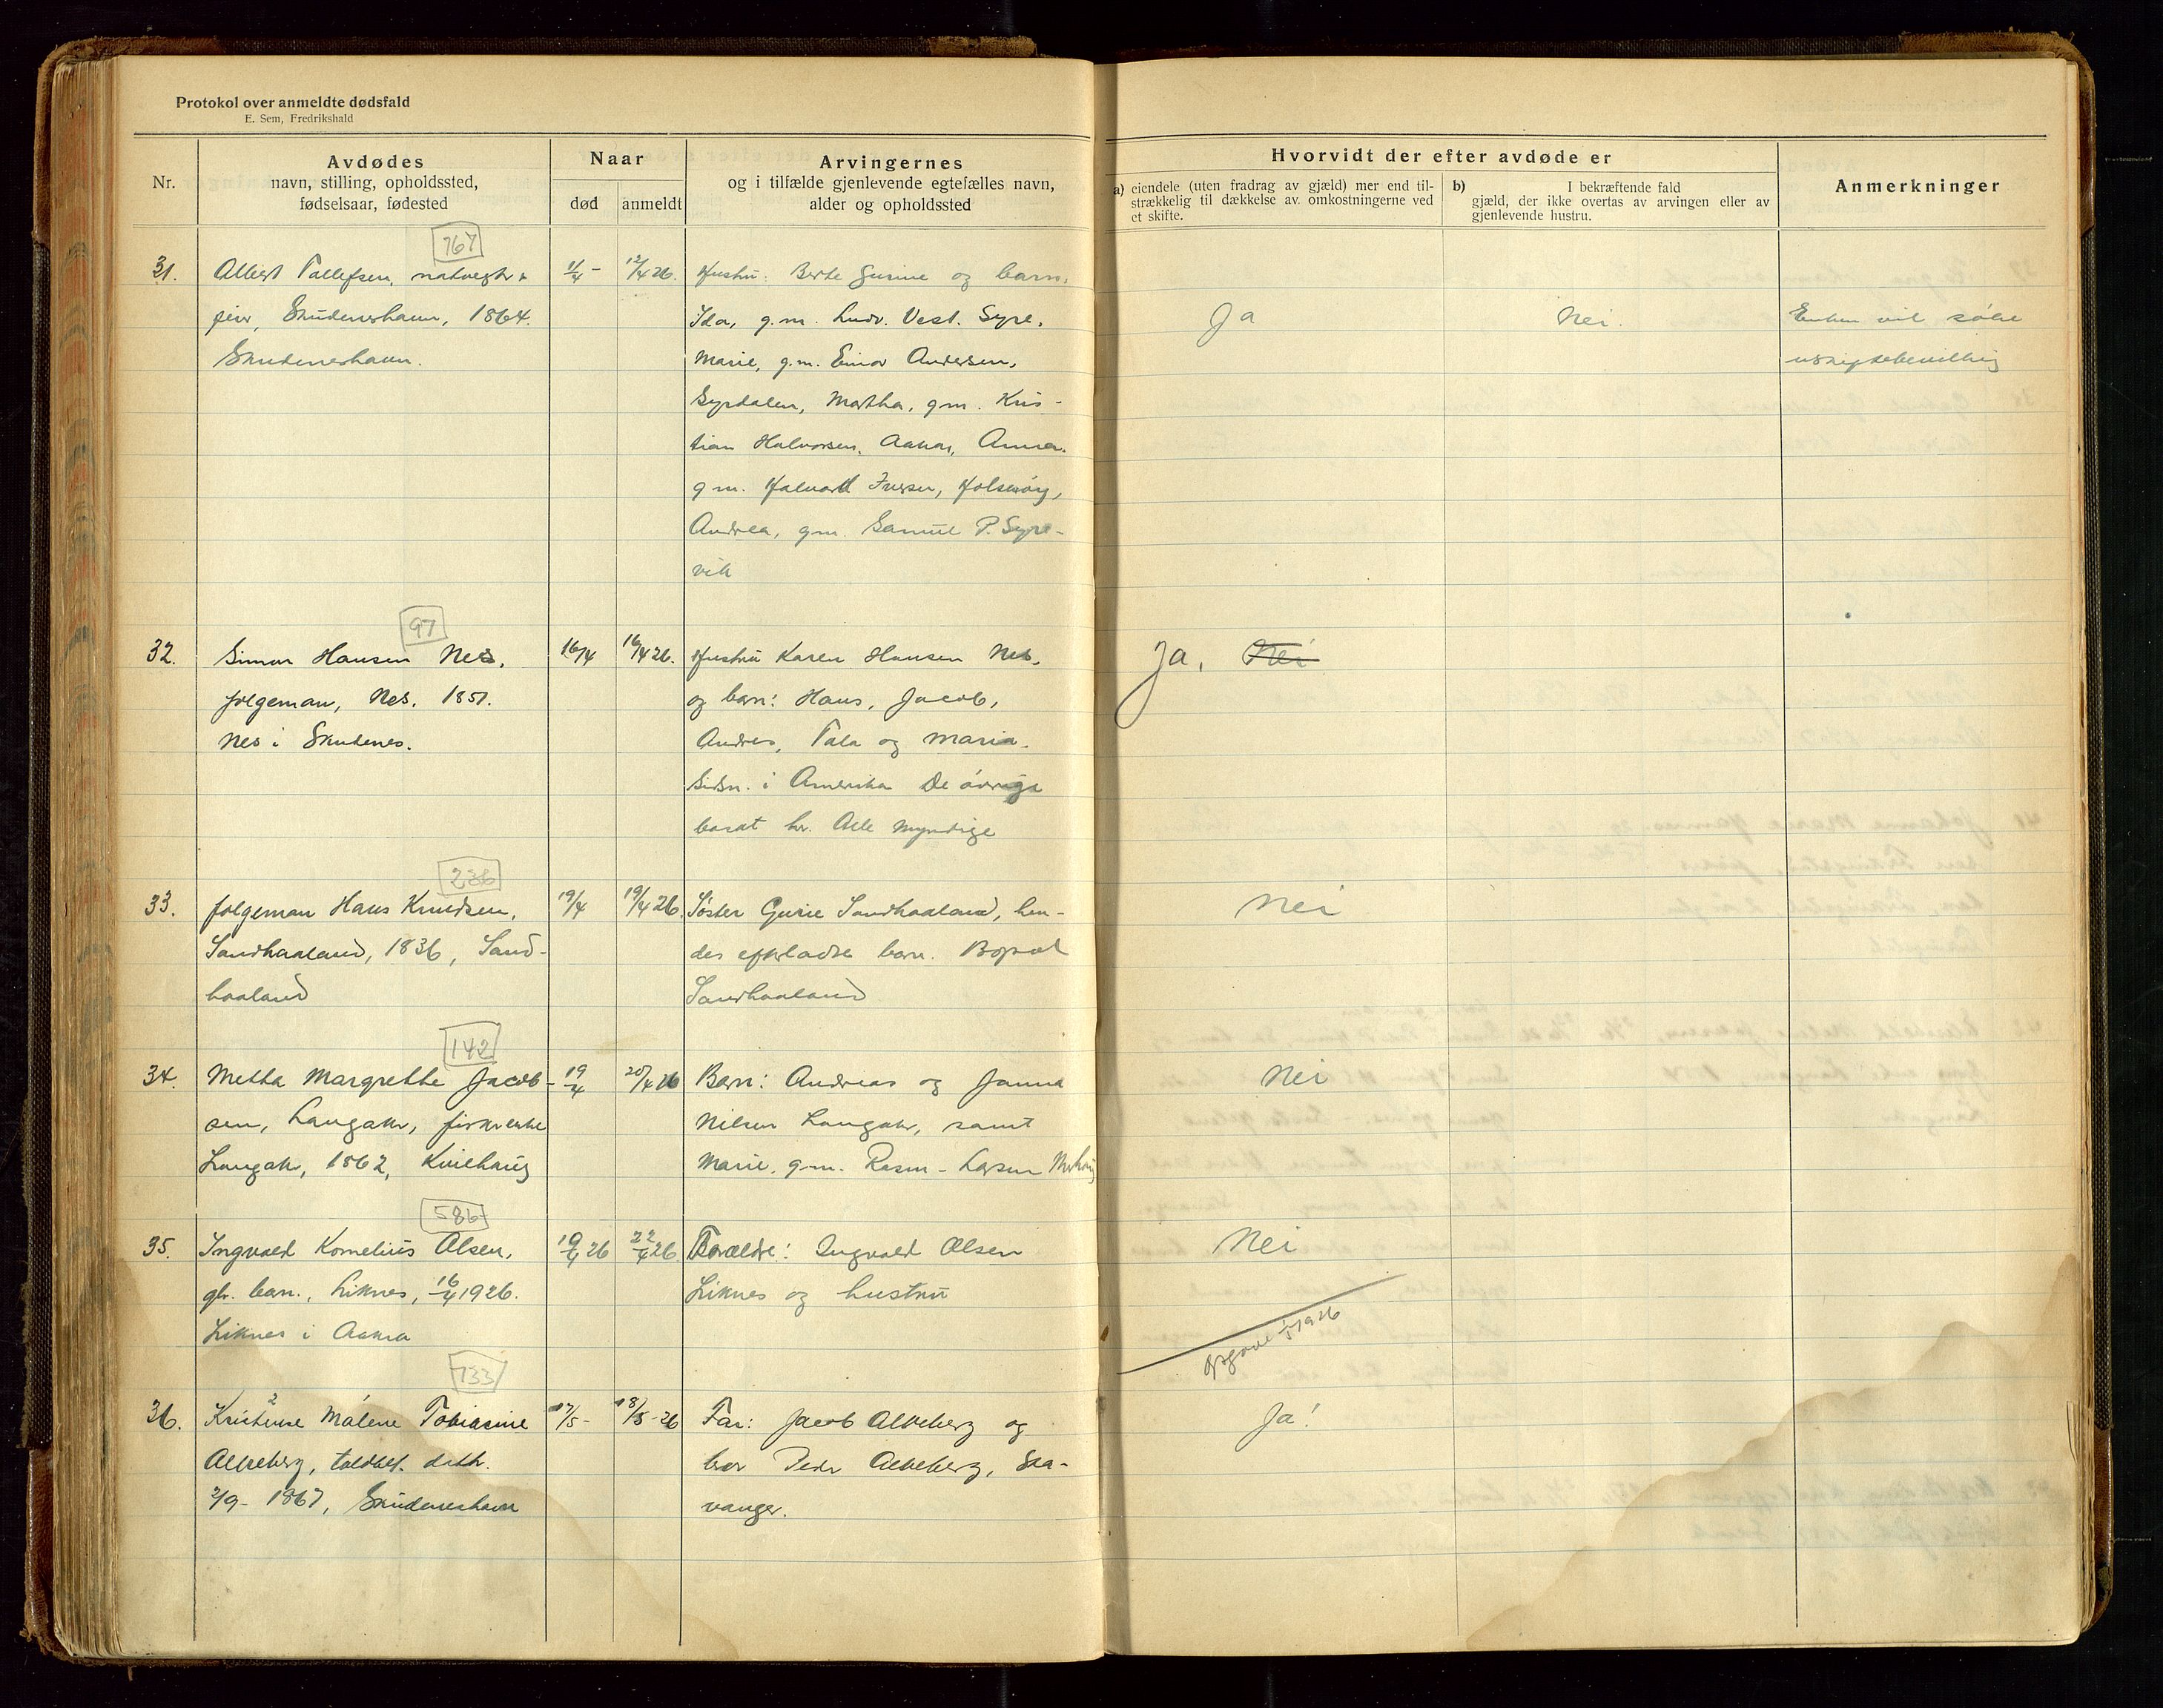 Protokol over anmeldte dødsfald
E. Sem, Fredrikshald
Nr.
Avdødes
navn, stilling, opholdssted,
fødselsaar, fødested
Naar
død
anmeldt
Arvingernes
og i tilfælde gjenlevende egtefælles navn,
alder og opholdssted
Hvorvidt der efter avdøde er
a) eiendele (uten fradrag av gjæld) mer end til-
strækkelig til dækkelse av omkostningerne ved
et skifte.
b) I bekræftende fald
gjæld, der ikke overtas av arvingen eller av
gjenlevende hustru.
Anmerkninger
767
31. Albert Tollefsen, natvegter
feier, Skudeneshavn, 1864.
Skudeneshavn.
11/4 - 12/4 26.
Hustru: Berte Gurine og barn:
Ida, g.m. Ludv. Vest. Syre,
Marie, g.m. Einar Andersen,
Syrdalen, Martha, g.m. Kris-
tian Halvorsen, Aakra, Anna,
g.m. Halvard Iversen,
Andrea, g.m. Samuel P. Syre-
vik
Ja
Nei.
Enken vil søke
uskiftebevilling
97
32. Simon Hansen Nes,
følgeman, Nes. 1851.
Nes i Skudenes.
16/4 16/4 26.
Hustru Karen Hansen Nes,
og barn: Hans, Jacob,
Andres, Tala og Maria.
Sidsn. i Amerika De øvrige
bosat her. Alle myndige
Ja, Nei
236
33. følgeman Hans Knudsen,
Sandhaaland, 1836, Sand-
haaland
19/4 19/4 26.
Søster Gurie Sandhaaland, hen-
des efterladte barn. Bopæl
Sandhaaland
Nei
142
34. Metha Margrethe Jacob-
sen, Langaker, fiskerenke
Langaker, 1862, Kvilhaug
19/4 20/4 26
Barn: Andreas og Janna
Nilsen Langaker, samt
Marie, g.m. Rasm. Larsen
Nei
586
35. Ingvald Kornelius Olsen,
gb. barn., Liknes, 16/4 1926.
Liknes i Aakra
19/4 26 22/4 26.
Forældre: Ingvald Olsen
Liknes og hustru
Nei
Opgave 1926
733
36. Kristense Málene Tobiasine
Alkeberg, toldbet. datter.
2/9- 1867, Skudeneshavn
17/5 - 18/5 - 26
Far: Jacob Alkeberg og
bror Peder Alkeberg, Sta-
vanger.
Ja!